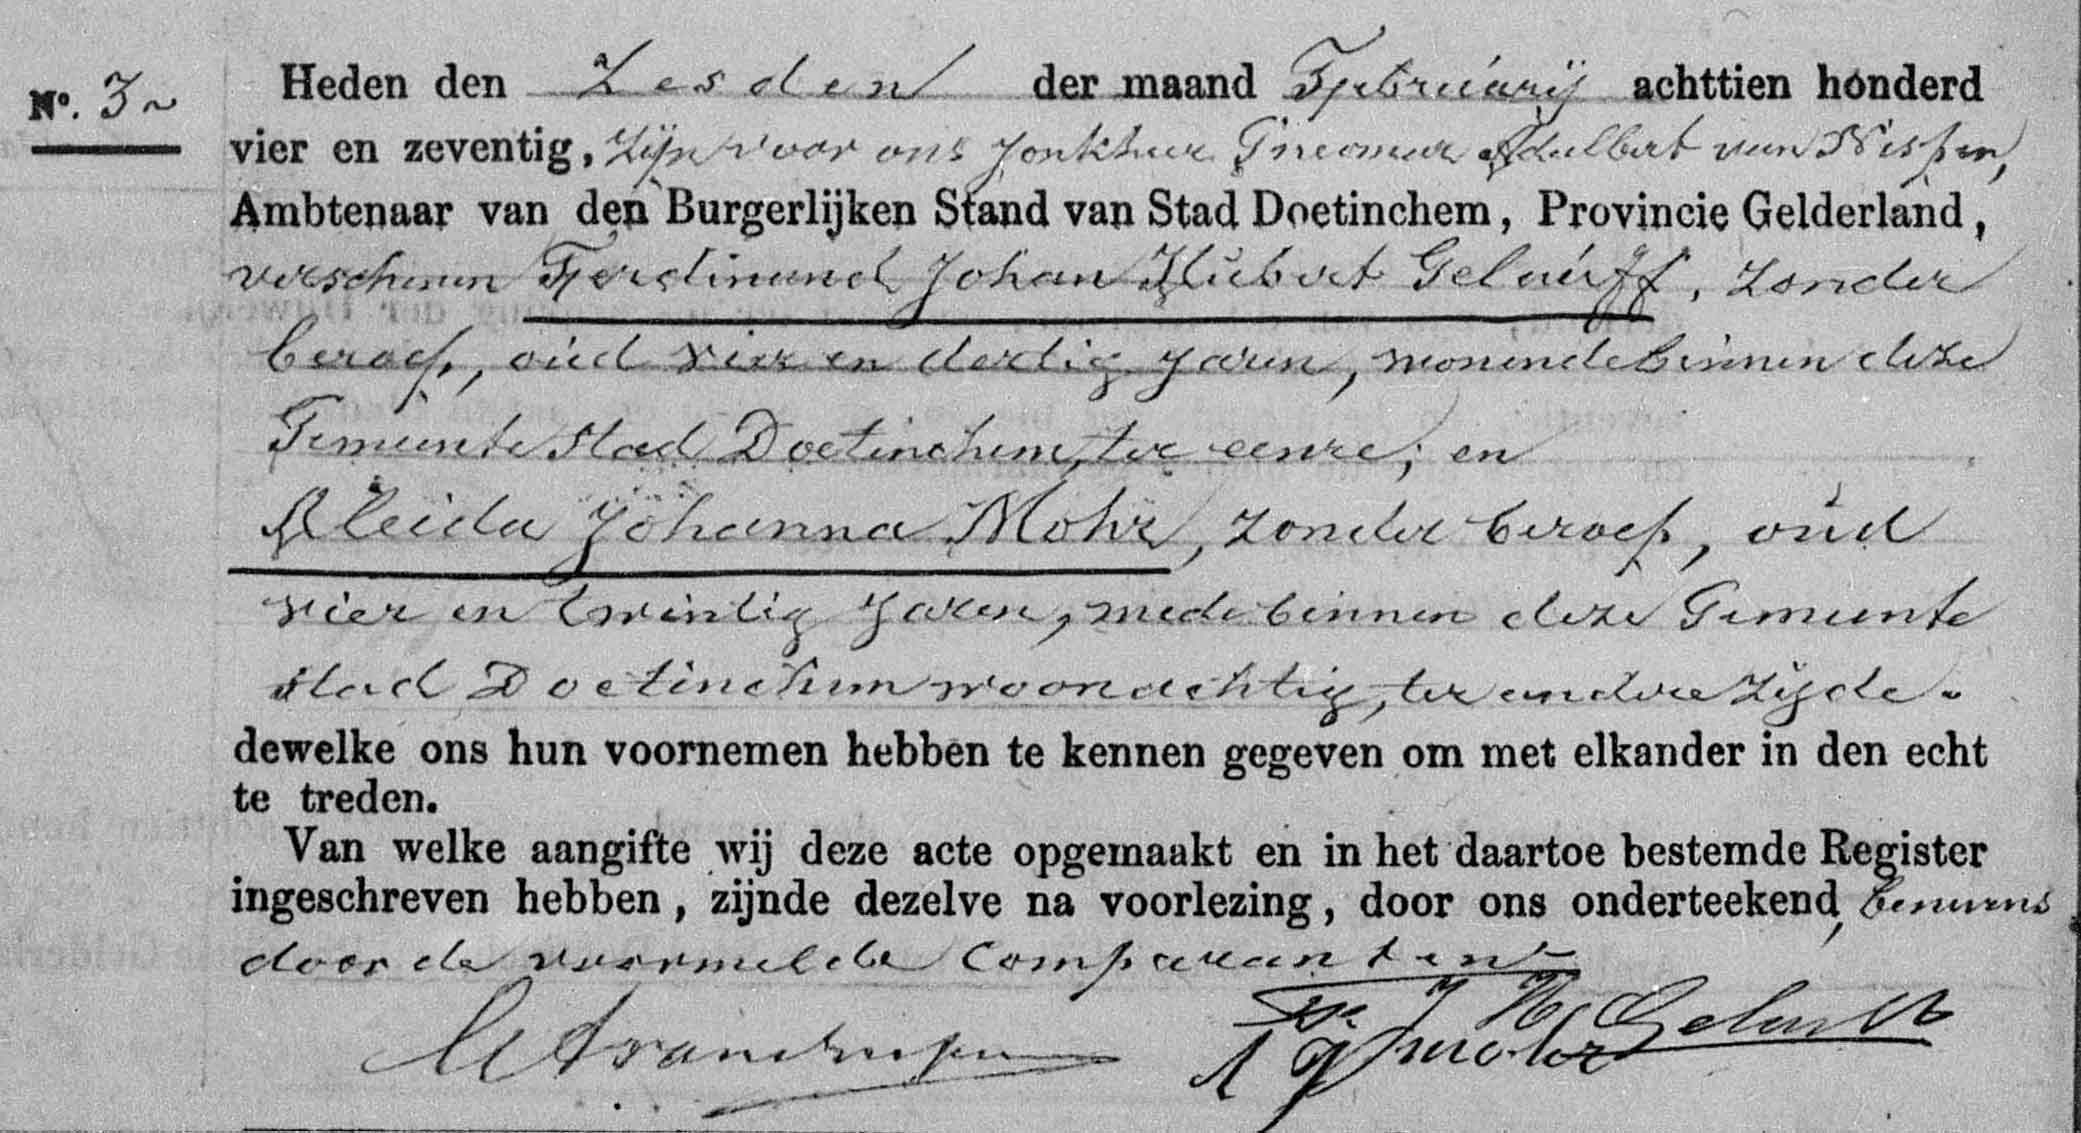 No. 3~ Heden den Zesden der maand Februarij achttien honderd
vier en zeventig, zijn voor ons Jonkheer Adelbert van Nispen,
Ambtenaar van den Burgerlijken Stand van Stad Doetinchem, Provincie Gelderland,
verschenen Ferdinand Johan Hubert Gelauff, zonder
beroep, oud vier en dertig jaren, wonende binnen deze
Gemeente Stad Doetinchem, ter eenre; en
Aleida Johanna Mohr, zonder beroep, oud
vier en twintig jaren, mede binnen deze Gemeente
Stad Doetinchem woonachtig, ter andere zijde.
dewelke ons hun voornemen hebben te kennen gegeven om met elkander in den echt
te treden.
Van welke aangifte wij deze acte opgemaakt en in het daartoe bestemde Register
ingeschreven hebben, zijnde dezelve na voorlezing, door ons onderteekend, benevens
door de voormelde Comparanten
F. J. H. Gelauff
A J Mohr